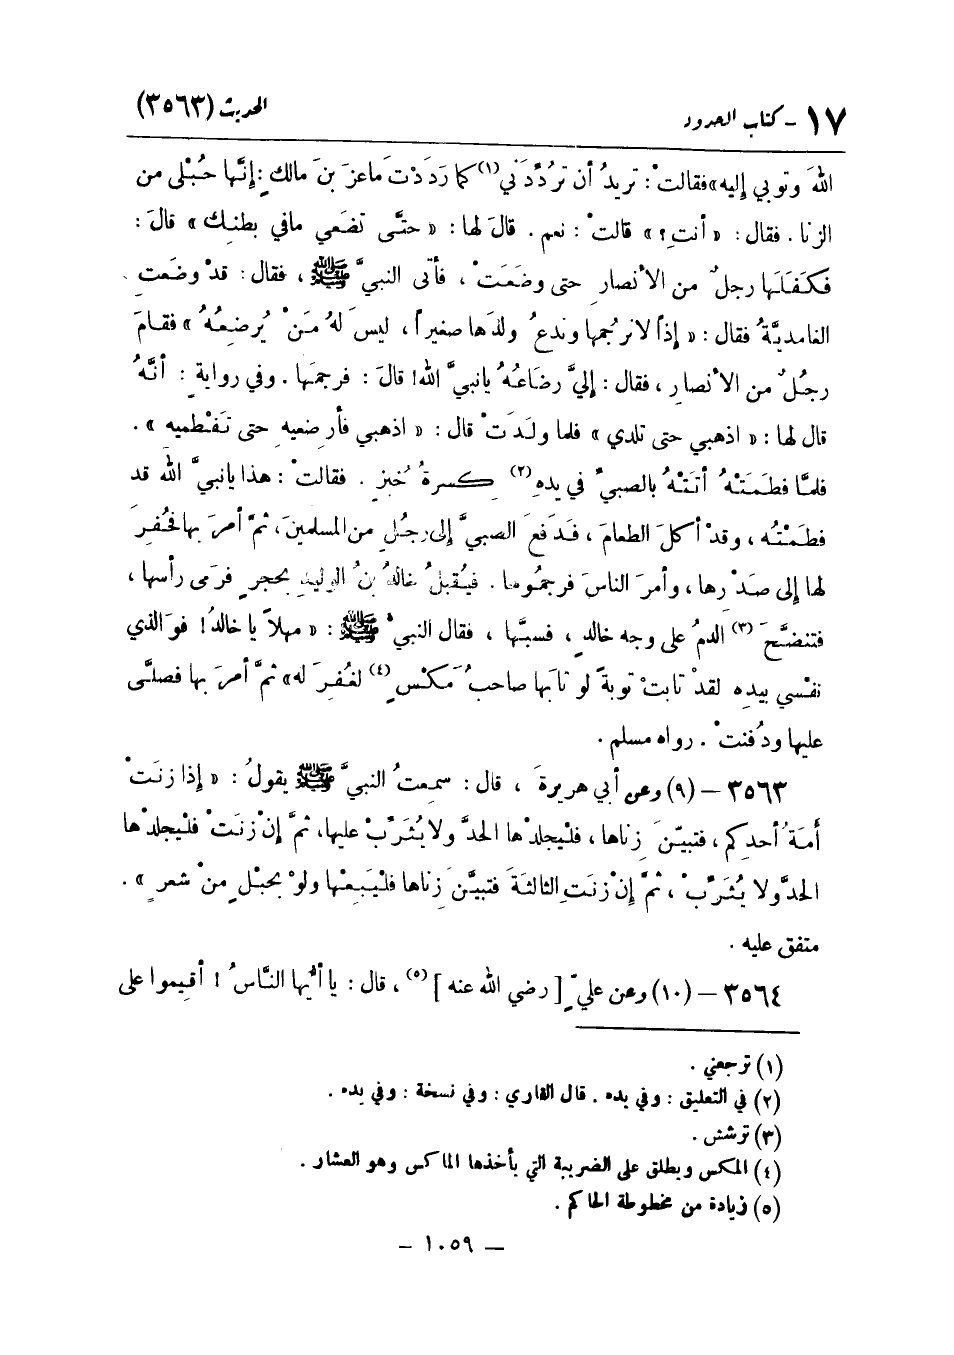 ١٧ - كتاب الحدود الحديث (٣٥٦٣)
اللهَ وتوبي إليه» فقالتْ: تريدُ أن تردِّدَني(١) كما ردَدْتَ ماعزَ بنَ مالك: إنَّها حُبْلى من
الزنا. فقال: «أنتِ؟» قالتْ: نعم. قالَ لها: «حتَّى تضَعي مافي بطنِك» قالَ:
فكَفَلَها رجلٌ من الأنصارِ حتى وضَعَتْ، فأتى النبيَّ ﷺ، فقال: قدْ وضَعتِ
الغامديَّةُ فقال: «إذاً لا نرجُمها وندعُ ولدَها صغيراً، ليسَ لهُ مَنْ يُرضِعُهُ» فقامَ
رجُلٌ من الأنصارِ، فقال: إليَّ رضَاعُهُ يانبيَّ الله! قالَ: فرجمَها. وفي روايةٍ: أنَّهُ
قال لها: «اذهبي حتى تلدي» فلما ولَدَتْ قال: «اذهبي فأرضعيهِ حتى تَفْطميهِ».
فلمَّا فطمَتْهُ أتَتْهُ بالصبيِّ في يدهِ(٢) كِسرةُ خُبزٍ. فقالتْ: هذا يانبيَّ الله قد
فطمْتُه، وقدْ أكلَ الطعامَ، فدَفعَ الصبيَّ إلى رجُلٍ من المسلمينَ، ثمَّ أمرَ بها فحُفِرَ
لها إلى صَدْرها، وأمرَ الناسَ فرجمُوها. فيُقبلُ خالدُ بنُ الوليدِ بحجرٍ فرَمى رأسها،
فتنضَّحَ(٣) الدمُ على وجه خالدٍ، فسبَّها، فقال النبيُّ ﷺ: «مهلاً يا خالدُ! فوَالذي
نفْسي بيدِه لقدْ تابتْ توبةً لو تابَها صاحبُ مَكْسٍ(٤) لغُفِرَ له» ثمَّ أمرَ بها فصلَّى
عليها ودُفنتْ. رواه مسلم.
٣٥٦٣ - (٩) وعن أبي هريرةَ، قال: سمعتُ النبيَّ ﷺ يقولُ: «إذا زنَتْ
أمَةُ أحدِكم، فتبيّنَ زِناها، فلْيجلدْها الحدَّ ولا يُثَرِّبْ عليها، ثمَّ إنْ زنَتْ فلْيجلدْها
الحدَّ ولا يُثَرِّبْ، ثمَّ إنْ زنَتِ الثالثةَ فتبيَّنَ زِناها فلْيَبِعْها ولوْ بحبْلٍ منْ شعرٍ».
متفق عليه.
٣٥٦٤ - (١٠) وعن عليٍّ [رضي الله عنه](٥)، قال: يا أيُّها النَّاسُ! أقيموا على
(١) ترجعني.
(٢) في التعليق: وفي يده. قال القاري: وفي نسخة: وفي يده.
(٣) ترشش.
(٤) المكس ويطلق على الضريبة التي يأخذها الماكس وهو العشار.
(٥) زيادة من مخطوطة الحاكم.
- ١٠٥٩ -